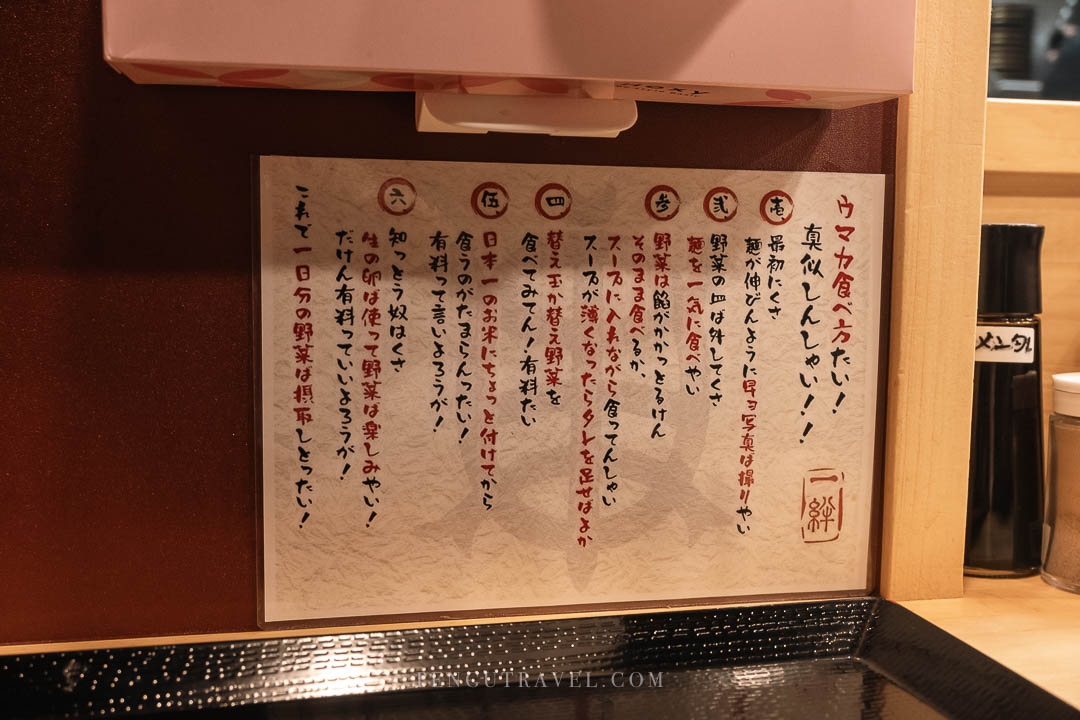 ウマカ食べ方たい!
真似しんしゃい!!
一絆
壱
最初にくさ
麺が伸びんように早ヨ写真は撮りやい
弐
野菜の皿ば外してくさ
麺を一気に食べやい
参
野菜は餡がかかっとるけん
そのまま食べるか、
スープに入れながら食ってんしゃい
スープが薄くなったらタレを足せばよか
四
替え玉か替え野菜を
食べてみてん!有料たい
伍
日本一のお米にちょっと付けてから
食うのがたまらんったい!
有料って言いよろうが!
六
知っとう奴はくさ
生の卵は使って野菜は楽しみやい!
だけん有料っていいよろうが!
これで一日分の野菜は摂取しとったい!
メンタレ
BENGUTRAVEL.COM